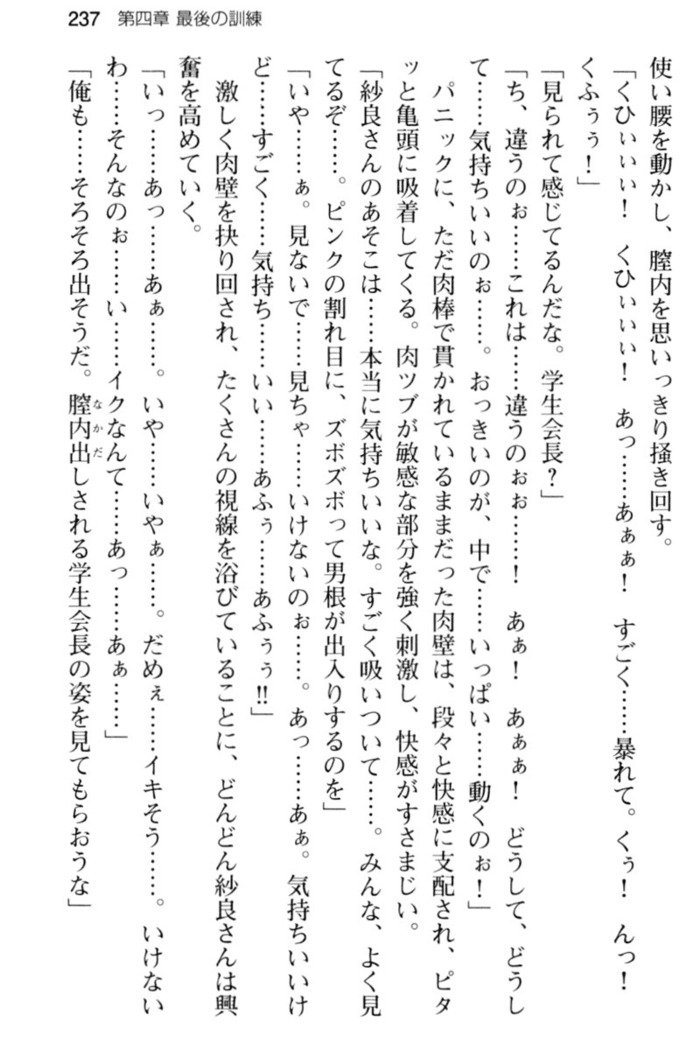 237 第四章 最後の訓練
使い腰を動かし、膣内を思いっきり掻き回す。
「くひぃぃぃ！ くひぃぃぃ！ あっ……あぁぁ！ すごく……暴れて。くぅ！ んっ！
くふぅぅ！」
「見られて感じてるんだな。学生会長？」
「ち、違うのぉ……これは……違うのぉぉ……！ あぁ！ あぁぁ！ どうして、どうし
て……気持ちいいのぉ……。おっきいのが、中で……いっぱい……動くのぉ！」
パニックに、ただ肉棒で貫かれているままだった肉壁は、段々と快感に支配され、ピタ
ッと亀頭に吸着してくる。肉ツブが敏感な部分を強く刺激し、快感がすさまじい。
「紗良さんのあそこは……本当に気持ちいいな。すごく吸いついて……。みんな、よく見
てるぞ……。ピンクの割れ目に、ズボズボって男根が出入りするのを」
「いや……ぁ。見ないで……見ちゃ……いけないのぉ……。あっ……あぁ。気持ちいいけ
ど……すごく……気持ち……いい……あふぅ……あふぅぅ!!」
激しく肉壁を抉り回され、たくさんの視線を浴びていることに、どんどん紗良さんは興
奮を高めていく。
「いっ……あっ……あぁ……。いや……いやぁ……。だめぇ……イキそう……。いけない
わ……そんなのぉ……い……イクなんて……あっ……あぁ……」
「俺も……そろそろ出そうだ。膣内出（なかだ）しされる学生会長の姿を見てもらおうな」